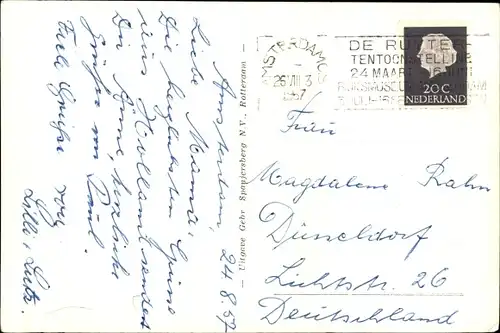 Amsterdam, 24.8.57
Liebe Mama,
Die herzlichsten Grüsse
aus Holland sendet
Dir Anne, herzliche
Grüße von Paul.
Viele Grüße von
Lilli, Lutz.
— Uitgave Gebr Spanjersberg N.V., Rotterdam —
AMSTERDAM
26 VIII 3
1957
DE RUYTER
TENTOONSTELLING
24 MAART
RIJKSMUSEUM
20 C
NEDERLAND
Frau
Magdalene Rahn
Düsseldorf
Lichtstr. 26
Deutschland